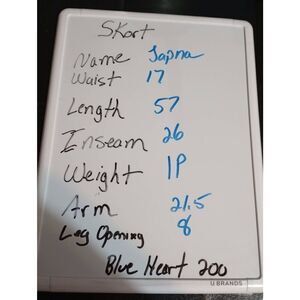 Skort
Name Sapna
Waist 17
Length 57
Inseam 26
Weight 1P
Arm 21.5
Leg Opening 8
Blue Heart 200
U BRANDS